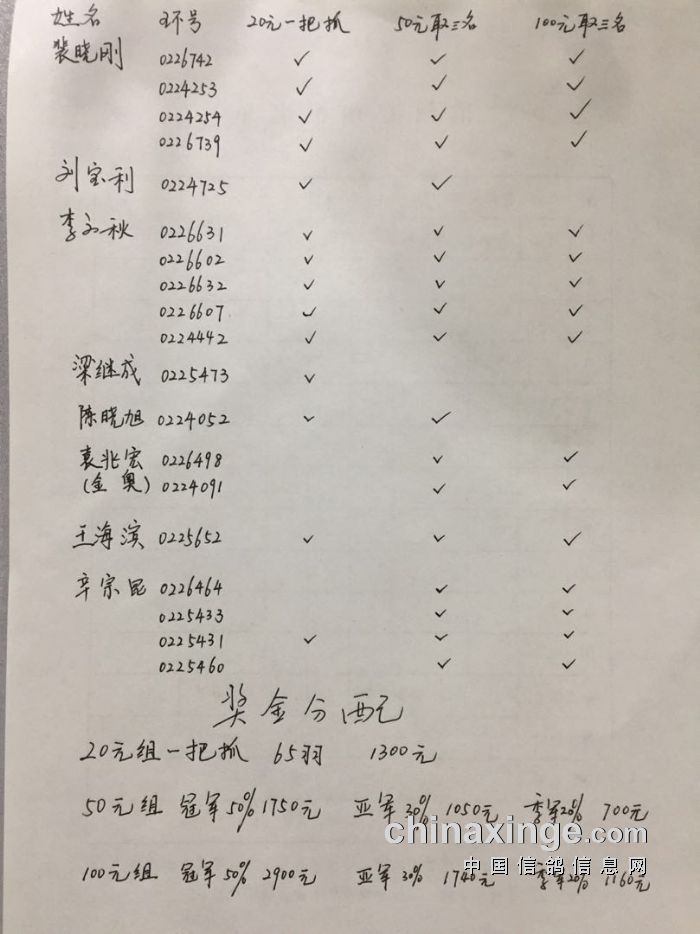 姓名 环号 20元一把抓 50元取三名 100元取三名
裴晓刚 0226742 ✓ ✓ ✓
0224253 ✓ ✓ ✓
0224254 ✓ ✓ ✓
0226739 ✓ ✓ ✓
刘宝利 0224725 ✓ ✓
李文秋 0226631 ✓ ✓ ✓
0226602 ✓ ✓ ✓
0226632 ✓ ✓ ✓
0226607 ✓ ✓ ✓
0224442 ✓ ✓ ✓
梁继成 0225473 ✓
陈晓旭 0224052 ✓ ✓
袁兆宏 0226498 ✓ ✓
(金奥) 0224091 ✓ ✓
王海滨 0225652 ✓ ✓ ✓
辛宗昆 0226464 ✓ ✓
0225433 ✓ ✓
0225431 ✓ ✓ ✓
0225460 ✓ ✓
奖金分配
20元组一把抓 65羽 1300元
50元组 冠军50% 1750元 亚军30% 1050元 季军20% 700元
chinaxinge.com
中国信鸽信息网
100元组 冠军50% 2900元 亚军30% 1740元 季军20% 1160元